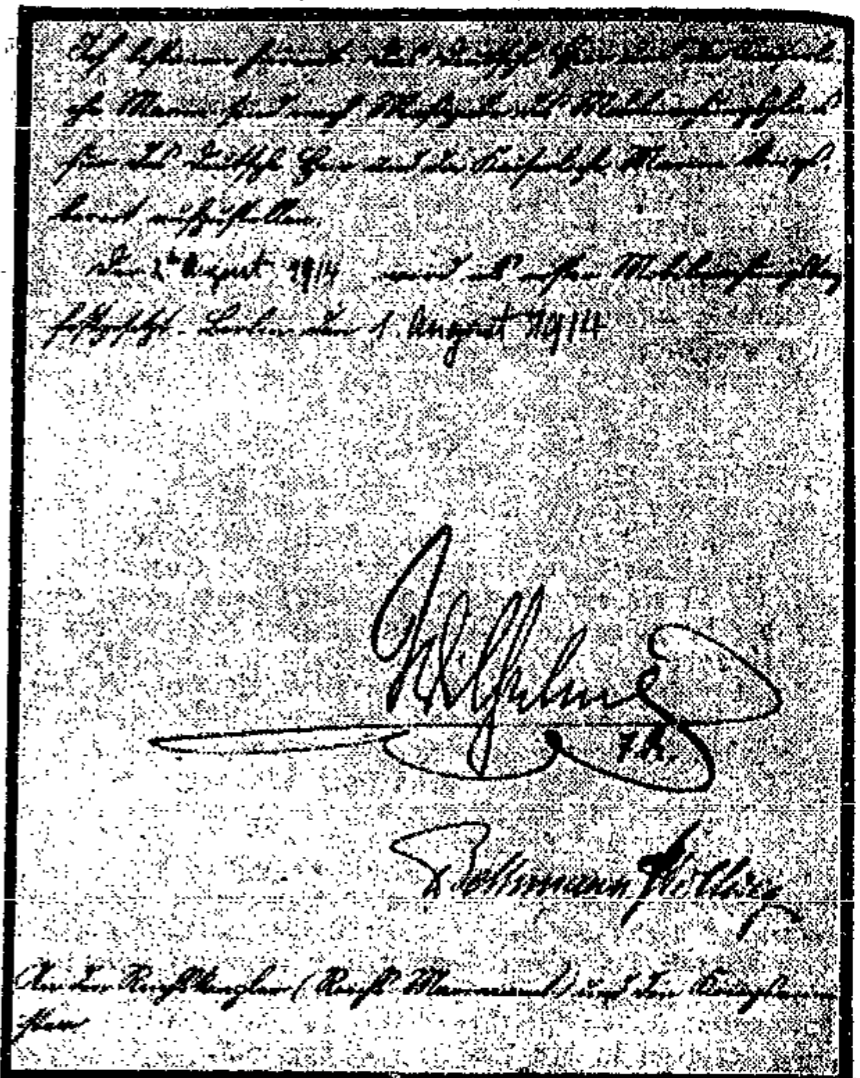 Ich bestimme hiermit: das Deutsche Heer und die Kaiserli-
che Marine sind nach Maßgabe des Mobilmachungsplans
für das Deutsche Heer und die Kaiserliche Marine kriegs-
bereit aufzustellen.
Der 2te August 1914 wird als erster Mobilmachungstag
festgesetzt. Berlin den 1. August 1914
Wilhelm
I. R.
Bethmann Hollweg
An den Reichskanzler (Reichs-Marineamt) und den Kriegsmini-
ster